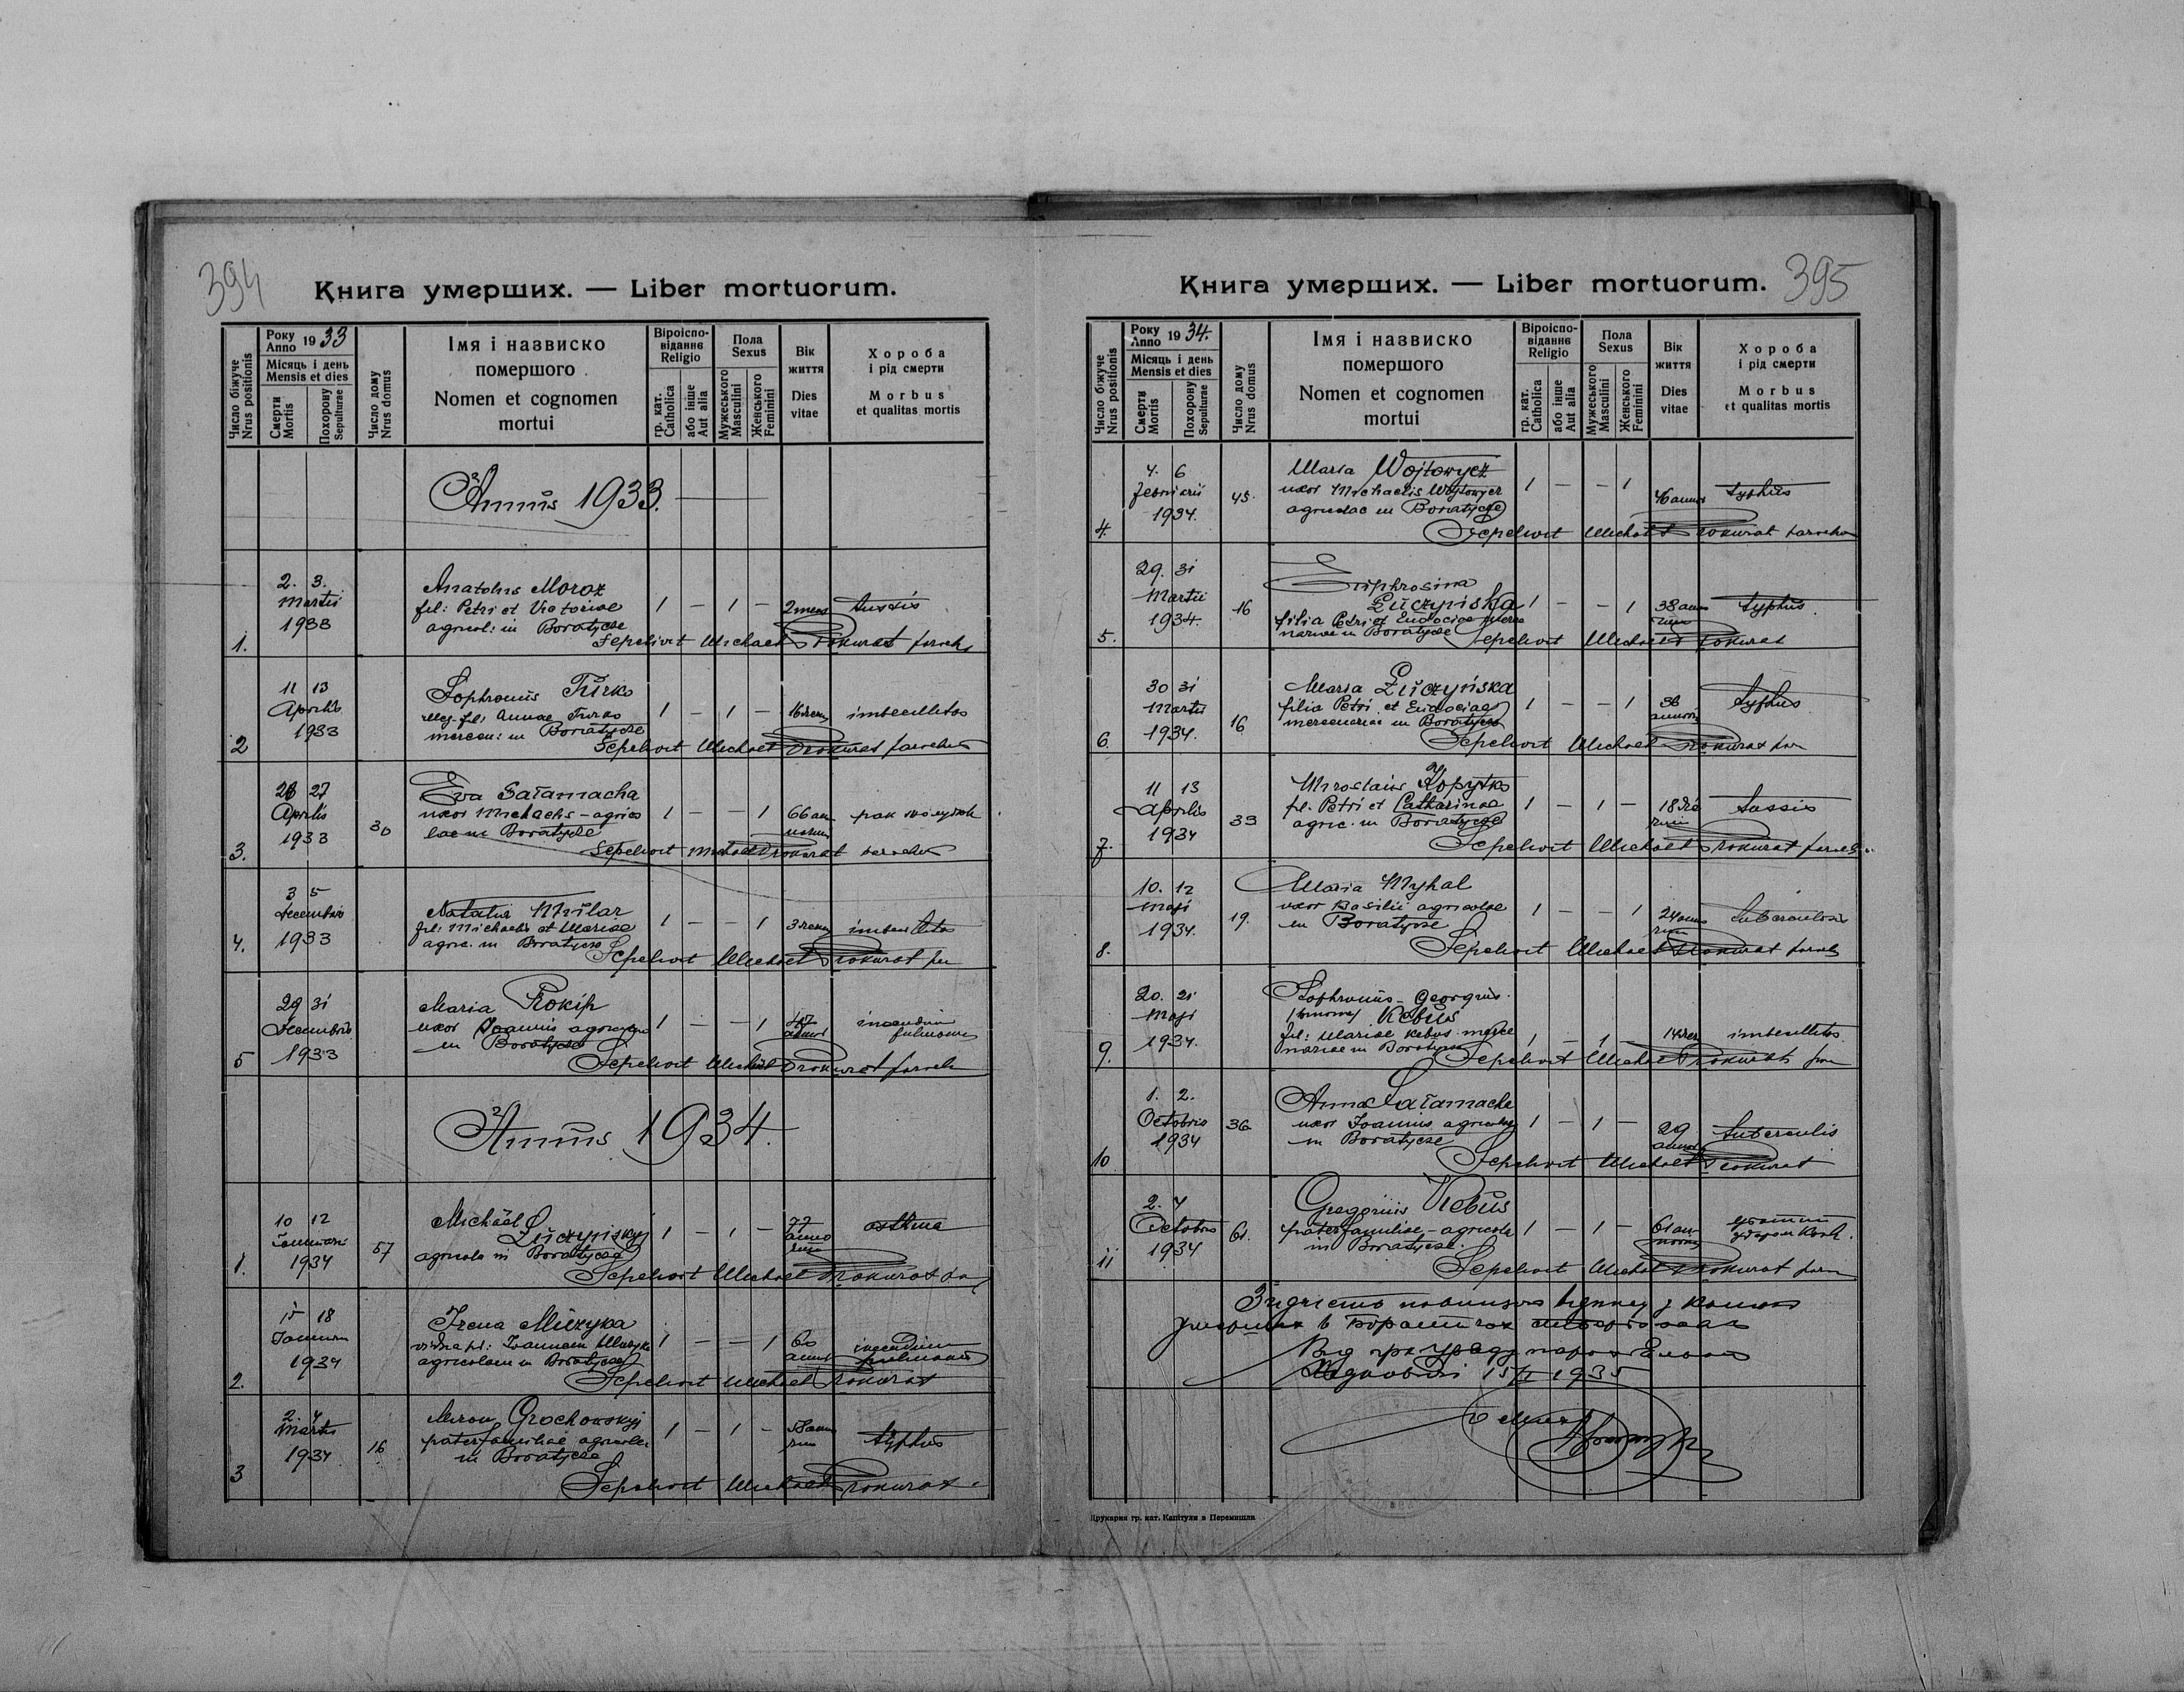 394
Книга умерших. — Liber mortuorum.
Число біжуче
Nrus positionis
Року
Anno 1933
Місяць і день
Mensis et dies
Смерти
Mortis
Похорону
Sepulturae
Число дому
Nrus domus
Імя і назвиско
помершого
Nomen et cognomen
mortui
Віроіспо-
віданнє
Religio
гр. кат.
Catholica
або інше
Aut alia
Пола
Sexus
Мужеського
Masculini
Женського
Feminini
Вік
життя
Dies
vitae
Хороба
і рід смерти
Morbus
et qualitas mortis
Annus 1933.
1. 2. 3. Martii 1933
Anatolius Moroz
fil: Petri et Victoriae
agricol: in Boratycze
1 — 1 — 2 mens tussis
Sepelivit Michael Prokurat paroch
2 11 13 Aprilis 1933
Sophronius Turko
illeg. fil: Annae Turko
mercen: in Boratycze
1 — 1 — imbecillitas
Sepelivit Michael Prokurat parochus
3. 26 27 Aprilis 1933 30
Eva Sałamacha
uxor Michaelis - agrico
lae in Boratycze
1 — — 1 66 an
norum
Sepelivit Michael Prokurat parochus
4. 3 5 Decembris 1933
Natalia
fil: Michaelis et Mariae
agric. in Boratycze
1 — — 1 imbecillitas
Sepelivit Michael Prokurat par
5 29 31 Decembris 1933
Maria Prokip
uxor Joannis agricolae
in Boratycze
1 — — 1 47 annor incendium
pulmonum
Sepelivit Michael Prokurat paroch
Annus 1934.
1. 10 12 Januarii 1934 57
Michaël Łuczyńskyj
agricola in Boratycze
1 — 1 — 77
anno
rum asthma
Sepelivit Michael Prokurat pa
2. 15 18 Januarii 1934
Irena Muzyka
vidua p: Joannem Muzyka
agricolam in Boratycze
1 — — 1 60
annor incendium
pulmonum
Sepelivit Michael Prokurat
3 2. 4 Martii 1934 16
Miron Grochowskyj
paterfamiliae agricola
in Boratycze
1 — 1 — typhus
Sepelivit Michael Prokurat
395
Книга умерших. — Liber mortuorum.
Число біжуче
Nrus positionis
Року
Anno 1934.
Місяць і день
Mensis et dies
Смерти
Mortis
Похорону
Sepulturae
Число дому
Nrus domus
Імя і назвиско
помершого
Nomen et cognomen
mortui
Віроіспо-
віданнє
Religio
гр. кат.
Catholica
або інше
Aut alia
Пола
Sexus
Мужеського
Masculini
Женського
Feminini
Вік
життя
Dies
vitae
Хороба
і рід смерти
Morbus
et qualitas mortis
4. 4. 6 1934. 45.
Maria Wojtowycz
uxor Michaelis Wojtowycz
agricolae in Boratycze
1 — — 1 46 annor typhus
Sepelivit Michael Prokurat parochus
5. 29. 31 Martii 1934. 16
Euphrosina
Łuczyńska
filia Petri et Eudociae merce
nariae in Boratycze
1 — — 1 38 anno
rum typhus
Sepelivit Michael Prokurat
6. 30 31 Martii 1934. 16
Maria Łuczyńska
filia Petri et Eudociae
mercenariae in Boratycze
1 — — 1 36
annoru typhus
Sepelivit Michael Prokurat par
7. 11 13 Aprilis 1934 33
Miroslaus Kopytko
fil. Petri et Catharinae
agric. in Boratycze
1 — 1 — 18 die
rum tussis
Sepelivit Michael Prokurat paroch
8. 10. 12 Maji 1934. 19.
Maria Myhal
uxor Basilii agricolae
in Boratycze
1 — — 1 24 anno
rum tuberculosis
Sepelivit Michael Prokurat paroch
9. 20. 21 Maji 1934.
Sophronius - Georgius
(binomus) Kebus
fil: Mariae Kebus merce
nariae in Boratycze
1 — 1 — imbecillitas
Sepelivit Michael Prokurat par
10 1. 2. Octobris 1934 36
Anna Sałamacha
uxor Joannis agricolae
in Boratycze
1 — 1 — 29
annor tuberculis
Sepelivit Michael Prokurat
11 2. 4 Octobris 1934 61.
Gregorius Kebus
paterfamiliae - agricola
in Boratycze.
1 — 1 — 61 an
norum
Sepelivit Michael Prokurat paro
Згідність повисшого з книгою
умерших в Боратичах
Від гр. к. Уряду парох.
15/I 1935
Друкарня гр. кат. Капітули в Перемишли